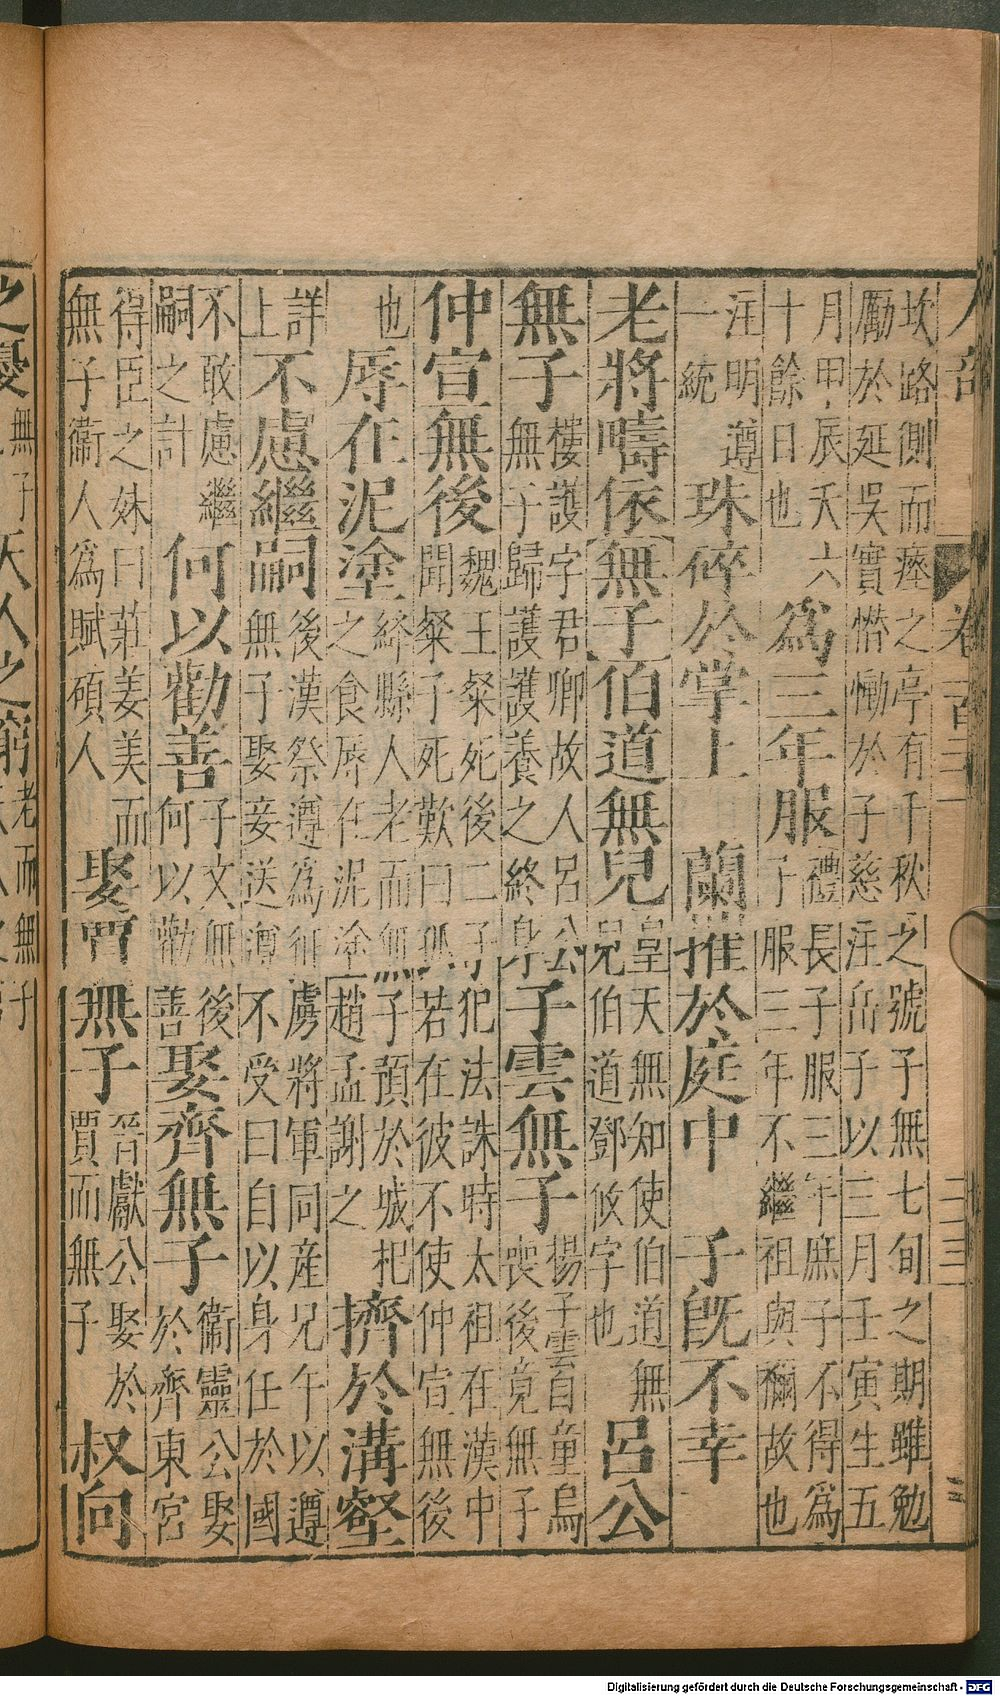 人部 卷百三十
坎路側而瘞之亭有千秋之號子無七旬之期雖勉
勵於延吳實慴慟於子慈注岳子以三月壬寅生五
月甲辰夭六
十餘日也
為三年服
禮長子服三年庶子不得為
子服三年不繼祖與禰故也
注明遵
一統
珠碎於掌上 蘭摧於庭中 子旣不幸
老將疇依 無子 伯道無兒
皇天無知使伯道無
兒伯道鄧攸字也
呂公
無子
樓護字君卿故人呂公
無子歸護護養之終身
子雲無子
揚子雲自童烏
喪後竟無子
仲宣無後
魏王粲死後二子犯法誅時太祖在漢中
聞粲子死歎曰孤若在彼不使仲宣無後
也
辱在泥塗
絳縣人老而無子預於城杞
之食辱在泥塗趙孟謝之
擠於溝壑
詳
上
不慮繼嗣
後漢祭遵為征虜將軍同產兄午以遵
無子娶妾送遵不受曰自以身任於國
不敢慮繼
嗣之計
何以勸善
子文無後
何以勸善
娶齊無子
衞靈公娶
於齊東宮
得臣之妹曰莊姜美而
無子衞人為賦碩人
娶賈無子
晉獻公娶於
賈而無子
叔向
之憂
無子
天人之窮
老而無子
Digitalisierung gefördert durch die Deutsche Forschungsgemeinschaft - DFG